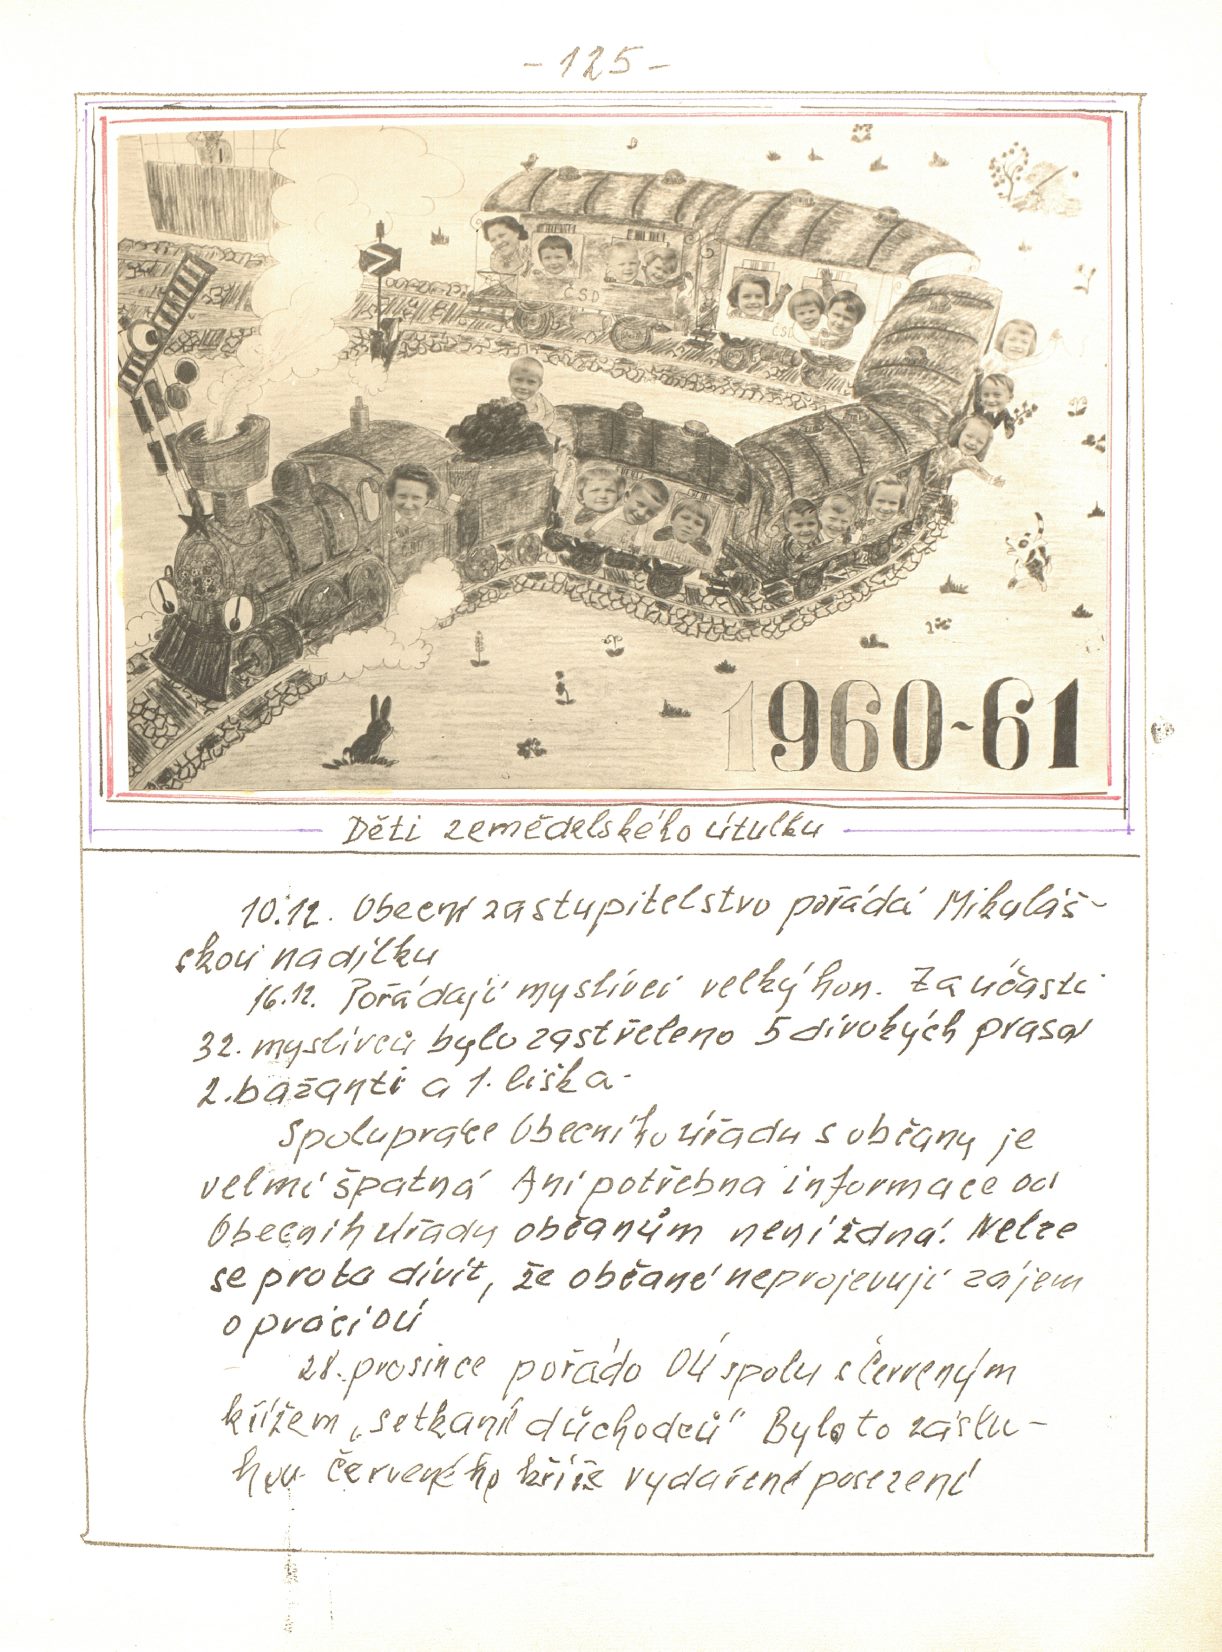 - 125 -
ČSD
ČSD
1960-61
Děti zemědelského útulku
10.12. Obecní zastupitelstvo pořádá Mikuláš-
skou nadílku
16.12. Pořádají myslivci velký hon. Za účasti
32. myslivců bylo zastřeleno 5 divokých prasat
2. bažanti a 1. liška.
Spolupráce Obecního úřadu s občany je
velmi špatná Ani potřebna informace od
Obecníh úřadu občanům není ždná. Nelze
se proto divit, že občané neprojevují zájem
o práci OÚ
28. prosince pořádo OÚ spolu s červeným
křížem "setkaní důchodců" Bylo to záslu-
hou červeného kříže vydařené posezení